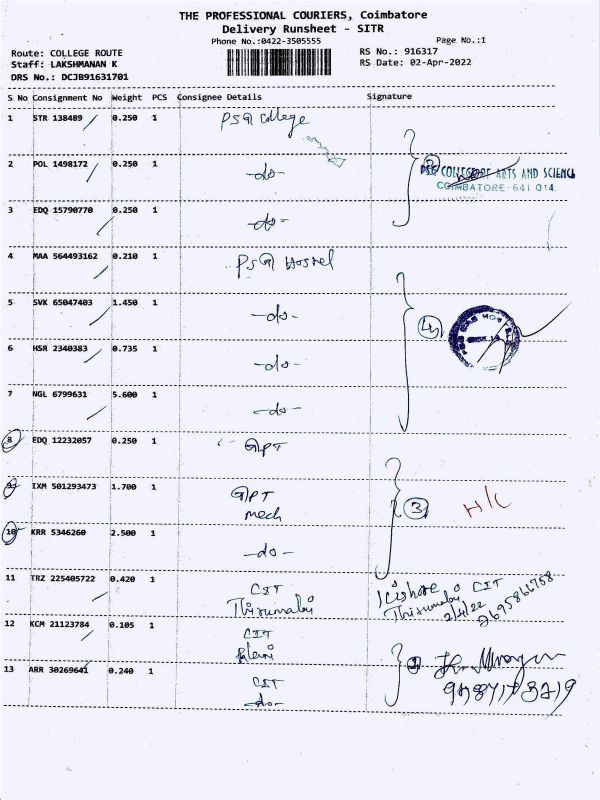 THE PROFESSIONAL COURIERS, Coimbatore
Delivery Runsheet - SITR
Phone No.:0422-3505555 Page No.:1
Route: COLLEGE ROUTE RS No.: 916317
Staff: LAKSHMANAN K RS Date: 02-Apr-2022
DRS No.: DCJB91631701
S No Consignment No Weight PCS Consignee Details Signature
1 STR 138489 0.250 1 PSG College
2 POL 1498172 0.250 1 -do- COLLEGE OF ARTS AND SCIENCE
COIMBATORE-641 014.
3 EDQ 15790770 0.250 1 -do-
4 MAA 564493162 0.210 1 PSG Hostel
5 SVK 65047403 1.450 1 -do- 4
6 HSR 2340383 0.735 1 -do-
7 NGL 6799631 5.600 1 -do-
8 EDQ 12232057 0.250 1 GPT
9 IXM 501293473 1.700 1 GPT
Mech 3 H/C
10 KRR 5346260 2.500 1 -do-
11 TRZ 225405722 0.420 1 CIT Kishore CIT
Thirumalai Thirumalai 2/4/22
12 KCM 21123784 0.105 1 CIT
13 ARR 30269641 0.240 1 CIT
-do-